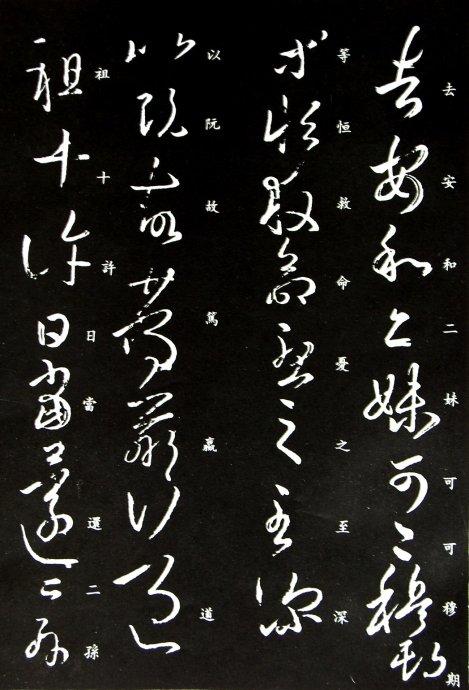 去安和二妹可可穆期
等恒救命憂之至深
以阮故篤羸道
祖十許日當還二孫